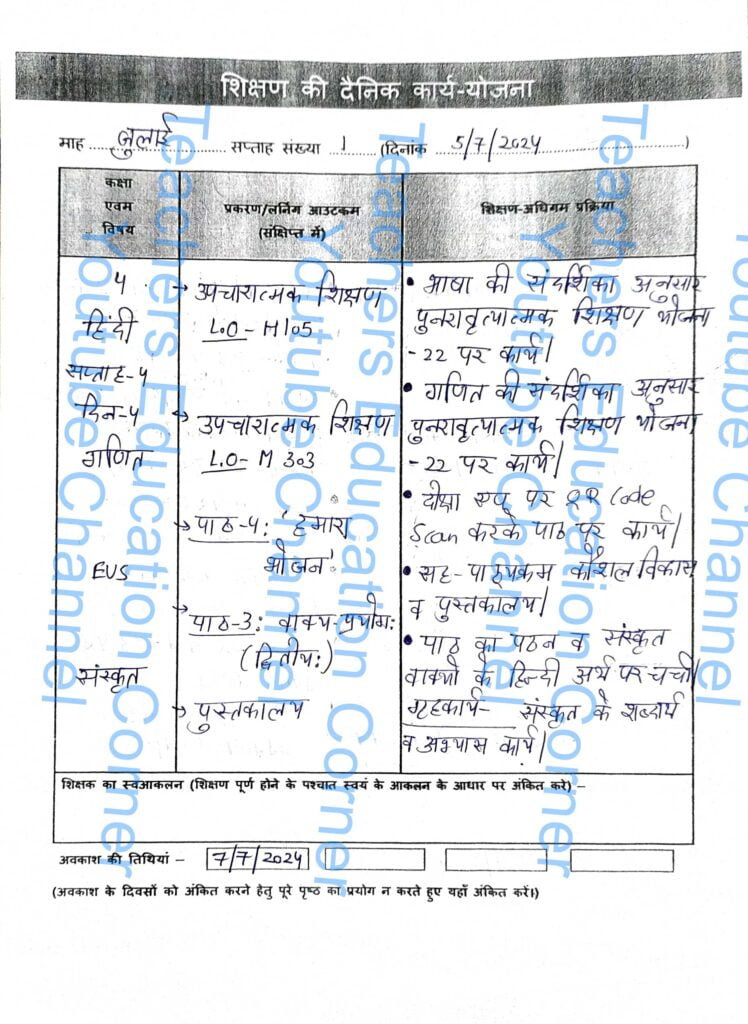 शिक्षण की दैनिक कार्य-योजना
माह जुलाई सप्ताह संख्या 1 (दिनांक 5/7/2024)
कक्षा
एवम
विषय
प्रकरण/लर्निंग आउटकम
(संक्षिप्त में)
शिक्षण-अधिगम प्रक्रिया
५
हिंदी
सप्ताह-५
दिन-५
गणित
EVS
संस्कृत
→ उपचारात्मक शिक्षण
L.O-H105
→ उपचारात्मक शिक्षण
L.O- M 303
→ पाठ-५: 'हमारा
भोजन'
→ पाठ-3: वाक्य-प्रयोगः
(द्वितीयः)
→ पुस्तकालय
• भाषा की संदर्शिका अनुसार
पुनरावृत्यात्मक शिक्षण योजना
-22 पर कार्य।
• गणित की संदर्शिका अनुसार
पुनरावृत्यात्मक शिक्षण योजना
-22 पर कार्य।
• दीक्षा एप पर QR Code
Scan करके पाठ पर कार्य।
• सह-पाठ्यक्रम कौशल विकास
व पुस्तकालय।
• पाठ का पठन व संस्कृत
वाक्यों के हिन्दी अर्थ पर चर्चा।
गृहकार्य- संस्कृत के शब्दार्थ
व अभ्यास कार्य।
शिक्षक का स्वआकलन (शिक्षण पूर्ण होने के पश्चात स्वयं के आकलन के आधार पर अंकित करे) –
अवकाश की तिथियां – 7/7/2024
(अवकाश के दिवसों को अंकित करने हेतु पूरे पृष्ठ का प्रयोग न करते हुए यहाँ अंकित करें।)
Teachers Education Corner
Youtube Channel
Teachers Education Corner
Youtube Channel
Teachers Education Corner
Youtube Channel